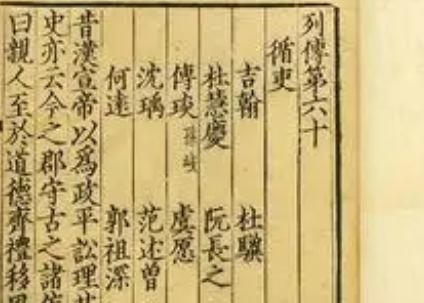 列傳第六十
循吏
吉翰 杜驥
杜慧慶 阮長之
傅琰 孫岐 虞愿
沈瑀 范述曾
何遠 郭祖深
昔漢宣帝以爲政平訟理其
史亦云今之郡守古之諸侯
曰親人至於道德齊禮移風